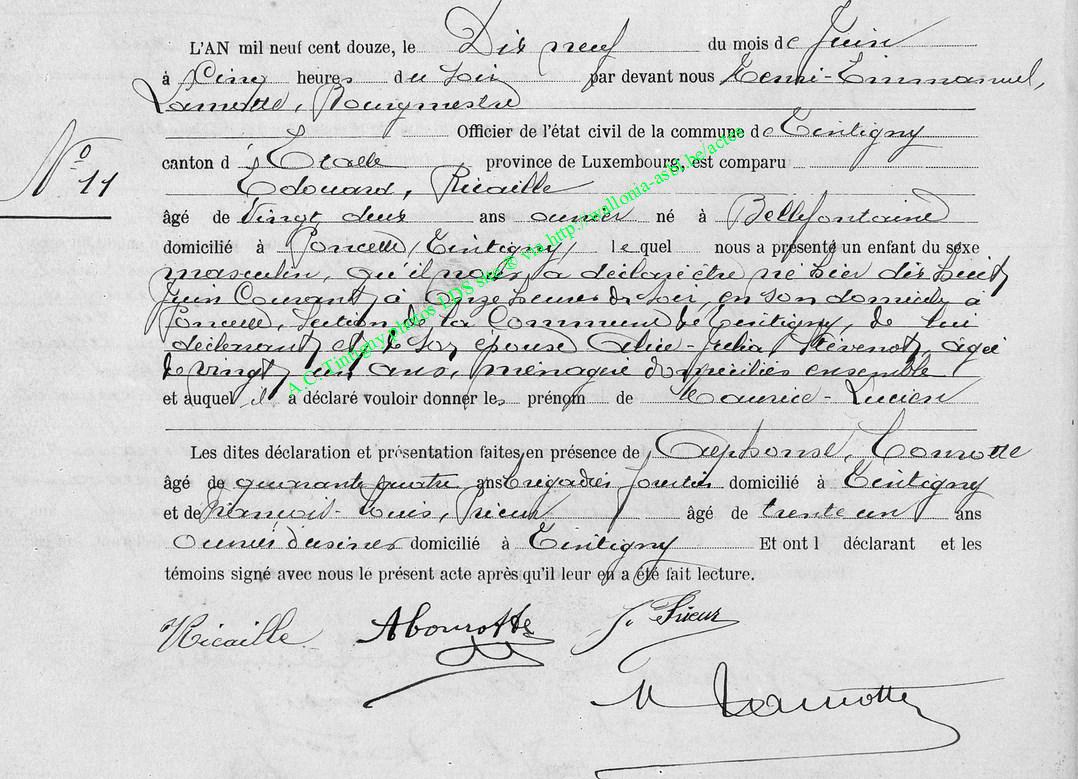 L'AN mil neuf cent douze, le Dix neuf du mois de Juin
à Cinq heures du soir par devant nous Henri-Emmanuel,
Lamotte, Bourgmestre
Officier de l'état civil de la commune de Tintigny
N° 11
canton d'Etalle province de Luxembourg, est comparu
Edouard, Ricaille
âgé de Vingt deux ans ouvrier né à Bellefontaine
domicilié à Poncelle, Tintigny, lequel nous a présenté un enfant du sexe
masculin, qu'il nous a déclaré être né hier dix huit
Juin Courant, à onze heures du soir, en son domicile à
Poncelle, Section de la Commune de Tintigny, de lui
déclarant et de son épouse Alice-Julia, Thévenot, âgée
de vingt un ans, ménagère domiciliés ensemble
et auquel il a déclaré vouloir donner les prénom de Maurice-Lucien
Les dites déclaration et présentation faites en présence de Alphonse,
âgé de quarante quatre ans brigadier forestier domicilié à Tintigny
et de François-Louis, Prieur âgé de trente un ans
Ouvrier d'usines domicilié à Tintigny Et ont l déclarant et les
témoins signé avec nous le présent acte après qu'il leur en a été fait lecture.
Ricaille Prieur
Lamotte
A.C. Tintigny photos LDS site ® via http://wallonia-asbl.be/actes